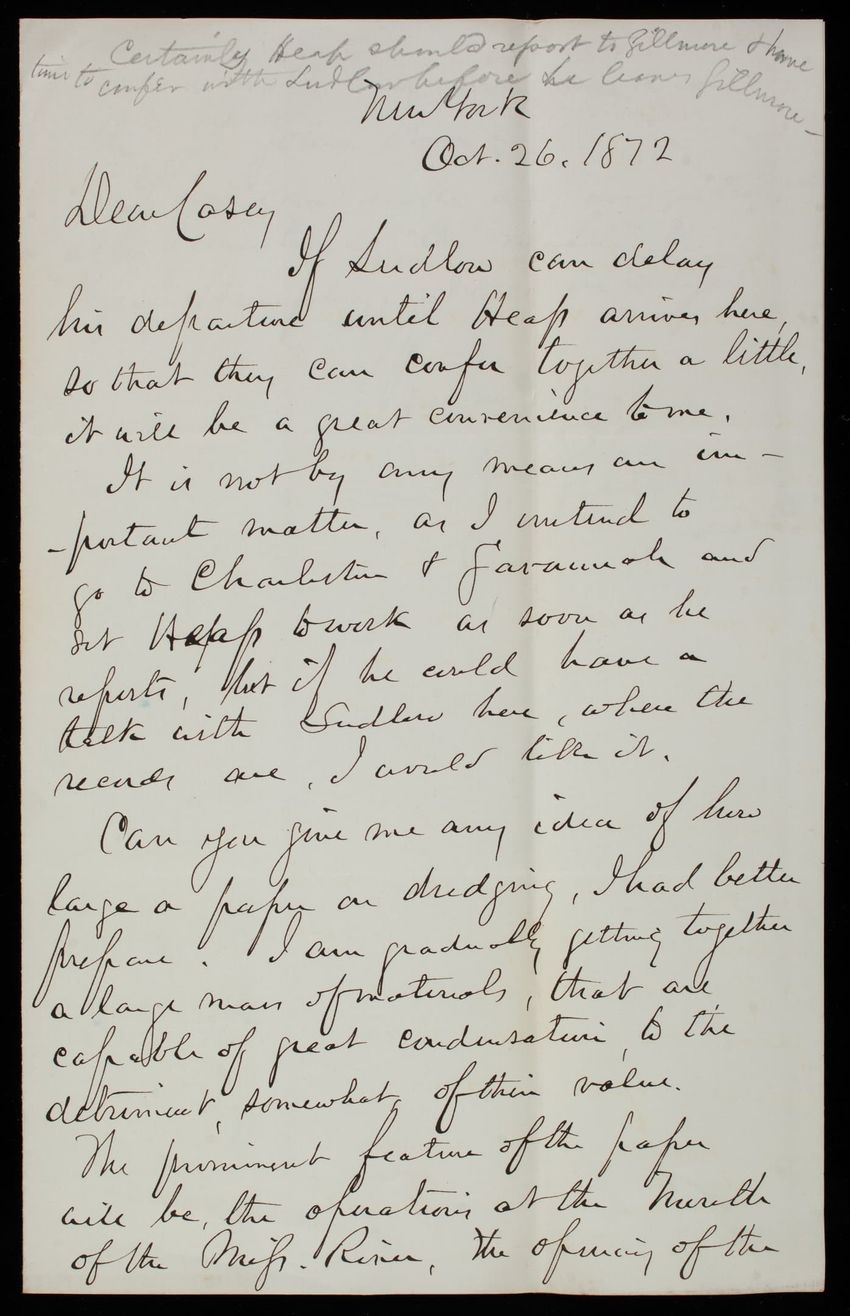 Certainly Heap should report to Gillmore & have
time to confer with Ludlow before he leaves Gillmore –
New York
Oct. 26. 1872
Dear Casey
If Ludlow can delay
his departure until Heap arrives here,
so that they can confer together a little,
it will be a great convenience to me.
It is not by any means an im-
-portant matter, as I intend to
go to Charleston & Savannah and
set Heap to work as soon as he
reports, but if he could have a
talk with Ludlow here, where the
records are, I would like it.
Can you give me any idea of how
large a paper on dredging, I had better
prepare. I am gradually getting together
a large mass of materials, that are
capable of great condensation, to the
detriment, somewhat, of their value.
The prominent feature of the paper
will be, the operations at the Mouth
of the Miss. River, the opening of the